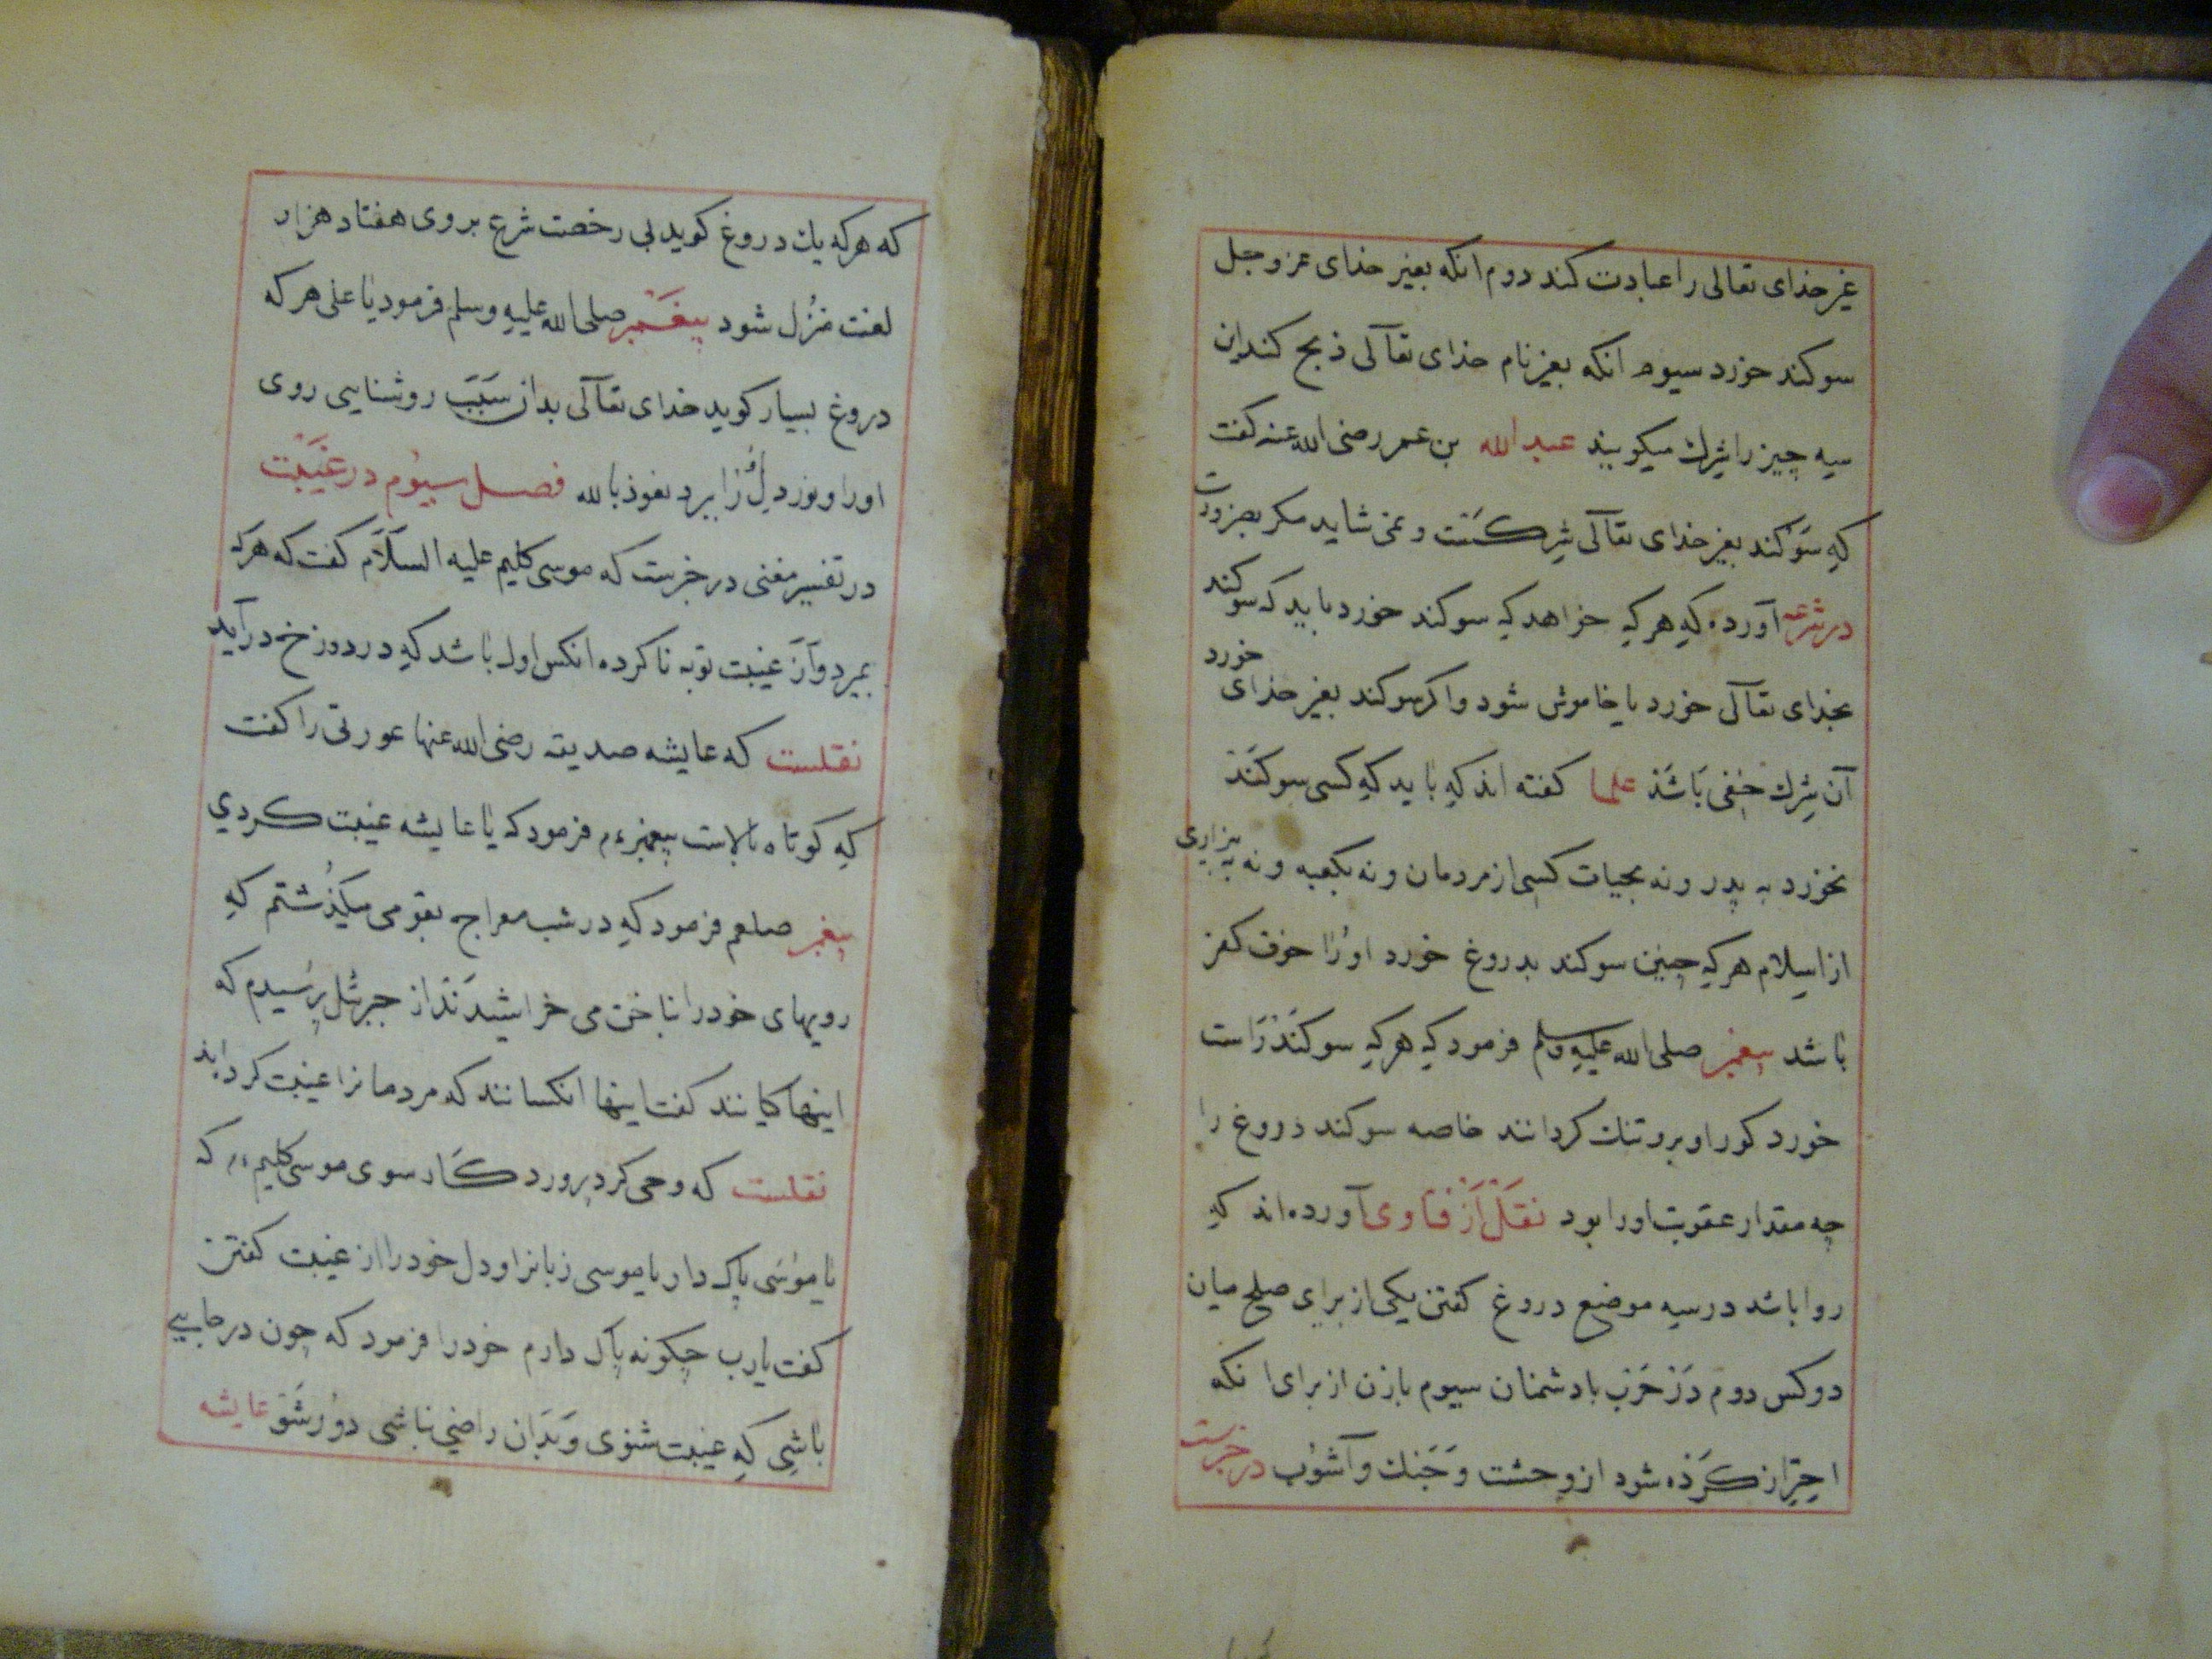 غیر خدای تعالی را عبادت کند دوم انکه بغیر خدای عز و جل
سوکند خورد سیوم انکه بغیر نام خدای تعآلی ذبح کند این
سه چیز را شرك میکویند عبد الله بن عمر رضی الله عنه کفت
کهِ سَوکند بغیر خدای تعآلی شِرکسَتْ و نمی شاید مکر بضرورت
در شرعه آورده کهِ هر کهِ خواهد کهِ سوکند خورد باید که سوکند
بخدای تعآلی خورد یا خاموش شود و اکر سوکند بغیر خدای خورد
آن شِرك خفی بَاشَدْ علما کفته اند کهِ باید کهِ کسی سوکَنَدْ
نخورد به پدر و نه بحیات کسی از مردمان و نه بکعبه و نه به بیزاری
از اسِلام هر کهِ چنین سوکند بدروغ خورد اورا خوف کفر
باشد پیغمبر صلی الله علیهِ وسلم فرمود کهِ هر کهِ سوکَندْ رَاست
خورد کور او برو تنك کردانند خاصه سوکند دروغ را
چه مقدار عقوبت اورا بود نقَلْ اَزْ فتاوی آورده اند کهِ
روا باشد در سه موضع دروغ کفتن یکی از برای صلح میان
دو کس دوم دَرْ حَرْب با دشمنان سیوم با زن از برای انکه
احِتِراز کَرْدَه شود از وحشت و جَنك و آشوُب در خبرست
که هر که یك دروغ کوید بی رخصت شرع بر وی هفتاد هزار
لعنت منزُل شود پیغَمْبر صلی الله علیهِ وسلم فرمود یا علی هر که
دروغ بسیار کوید خدای تعآلی بدان سَبَبْ روشنایی روی
اورا و نور دِل اُوْرا ببرد نعوذ بالله فصل سیوُم در غیَبَتْ
در تفسیر مغنی در خبرست که موسی کلیم علیه السَلَام کفت که هر که
بمیرد و اَزْ غیبت توبه نا کرده انکس اول باشد کهِ در دوزخ درآید
نقلست که عایشه صدیقه رضی الله عنها عورتی را کفت
کهِ کوتاه بالاست پیغمبر ءم فرمود که یا عایشه غیبت کردي
پیغمبر صلعم فرمود کهِ در شب معراج بقومی میکذُشتم کهِ
رویهای خودرا بناخن می خراشیدَنْد از جبرئل پرسُیدم که
اینها کیانند کفت اینها انکسانند که مردمانرا غیبت کرده اند
نقلست که وحی کرد پروردکَار سوی موسی کلیم ءم که
یا موُسَی پاك دار یا موسی زبانرا و دل خودرا از غیبت کفتن
کفت یا رب چکونه پاك دارم خودرا فرمود که چون در جایی
باشیِ کهِ غیبت شنوی و بَدَان راضي نباشی دوُر شَوْ عایشه